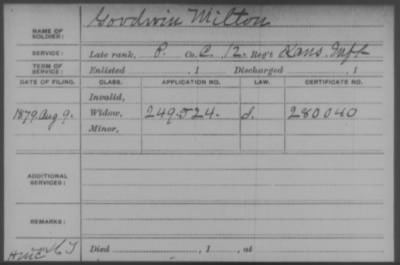 Goodwin Milton
NAME OF SOLDIER:
SERVICE: Late rank, P. Co. C, 12. Reg't Kans. Inf.
TERM OF SERVICE: Enlisted , 1 Discharged , 1
DATE OF FILING. CLASS. APPLICATION NO. LAW. CERTIFICATE NO.
Invalid,
1879 Aug 9. Widow, 249.524. 280040
Minor,
ADDITIONAL SERVICES:
REMARKS:
Died , 1 , at